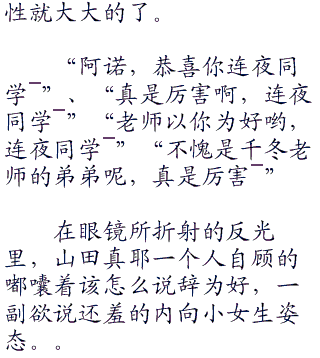 性就大大的了。
“阿诺，恭喜你连夜同
学¯”、“真是厉害啊，连夜
同学¯”“老师以你为好哟，
连夜同学¯”“不愧是千冬老
师的弟弟呢，真是厉害¯”
在眼镜所折射的反光
里，山田真耶一个人自顾的
嘟囔着该怎么说辞为好，一
副欲说还羞的内向小女生姿
态。。